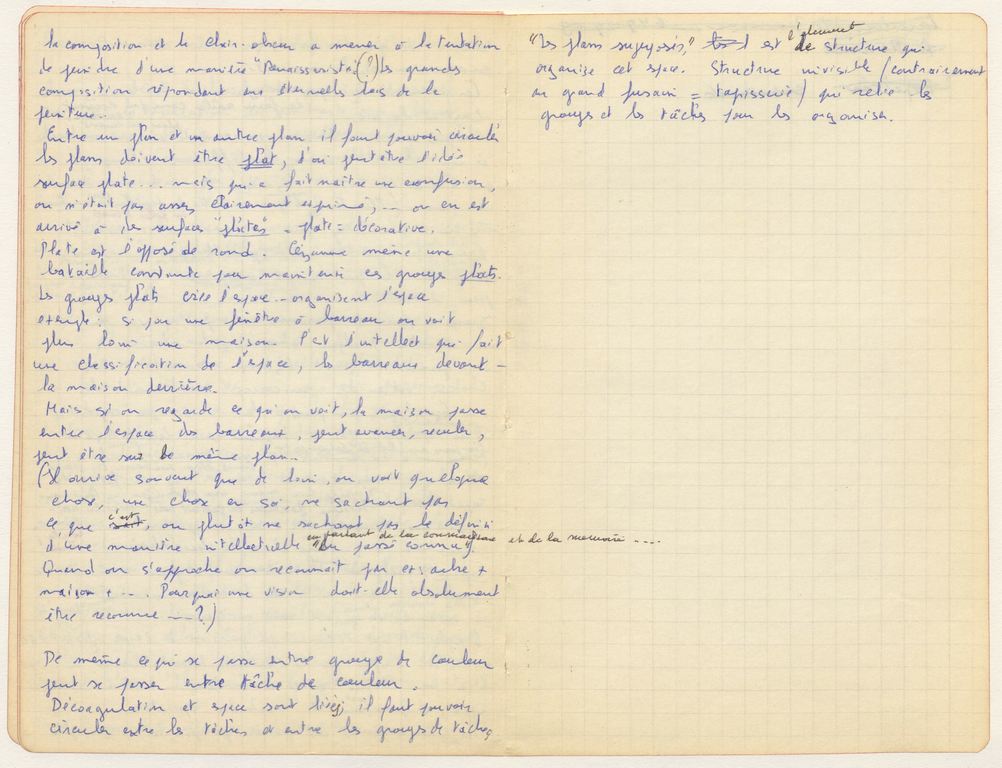 la composition et le clair-obscur a mener à la tentation
de peindre d'une manière "Renaissiviste" (?) les grands
composition répondant aux éternelles lois de la
peinture..
Entre un plan et un autre plan il faut pouvoir circuler
les plans doivent être plat, d'où peut être l'idée
surface plate... mais qui a fait naître une confusion,
ou n'était pas assez clairement exprimé,... on en est
arrivé à des surfaces "plates" - plate = décorative.
Plate est l'opposé de rond. Cézanne mène une
bataille constante pour maintenir ces groupes plats.
Les groupes plats crée l'espace - organisent l'espace
exemple: si par une fenêtre à barreau on voit
plus loin une maison. C'est l'intellect qui fait
une classification de l'espace, les barreaux devant -
la maison derrière.
Mais si on regarde ce qu'on voit, la maison passe
entre l'espace des barreaux, peut avancer, reculer,
peut être sur le même plan..
(Il arrive souvent que de loin, on voit quelque
chose, une chose en soi, ne sachant pas
ce que c'est, ou plutôt ne sachant pas le définir
d'une manière intellectuelle en partant de la connaissance et de la memoire ....
"du passé connu").
Quand on s'approche on reconnait par ex: arbre +
maison + -.. Pourquoi une vision doit-elle absolument
être reconnue ---?)
De même ce qui se passe entre groupe de couleur
peut se passer entre tâche de couleur.
Décoagulation et espace sont liées; il faut pouvoir
circuler entre les tâches et entre les groupes de tâches
"Les plans supposés," est l'element de structure qui
organise cet espace. Structure invisible (contrairement
au grand fusain = tapisserie) qui relie les
groupes et les tâches pour les organiser.